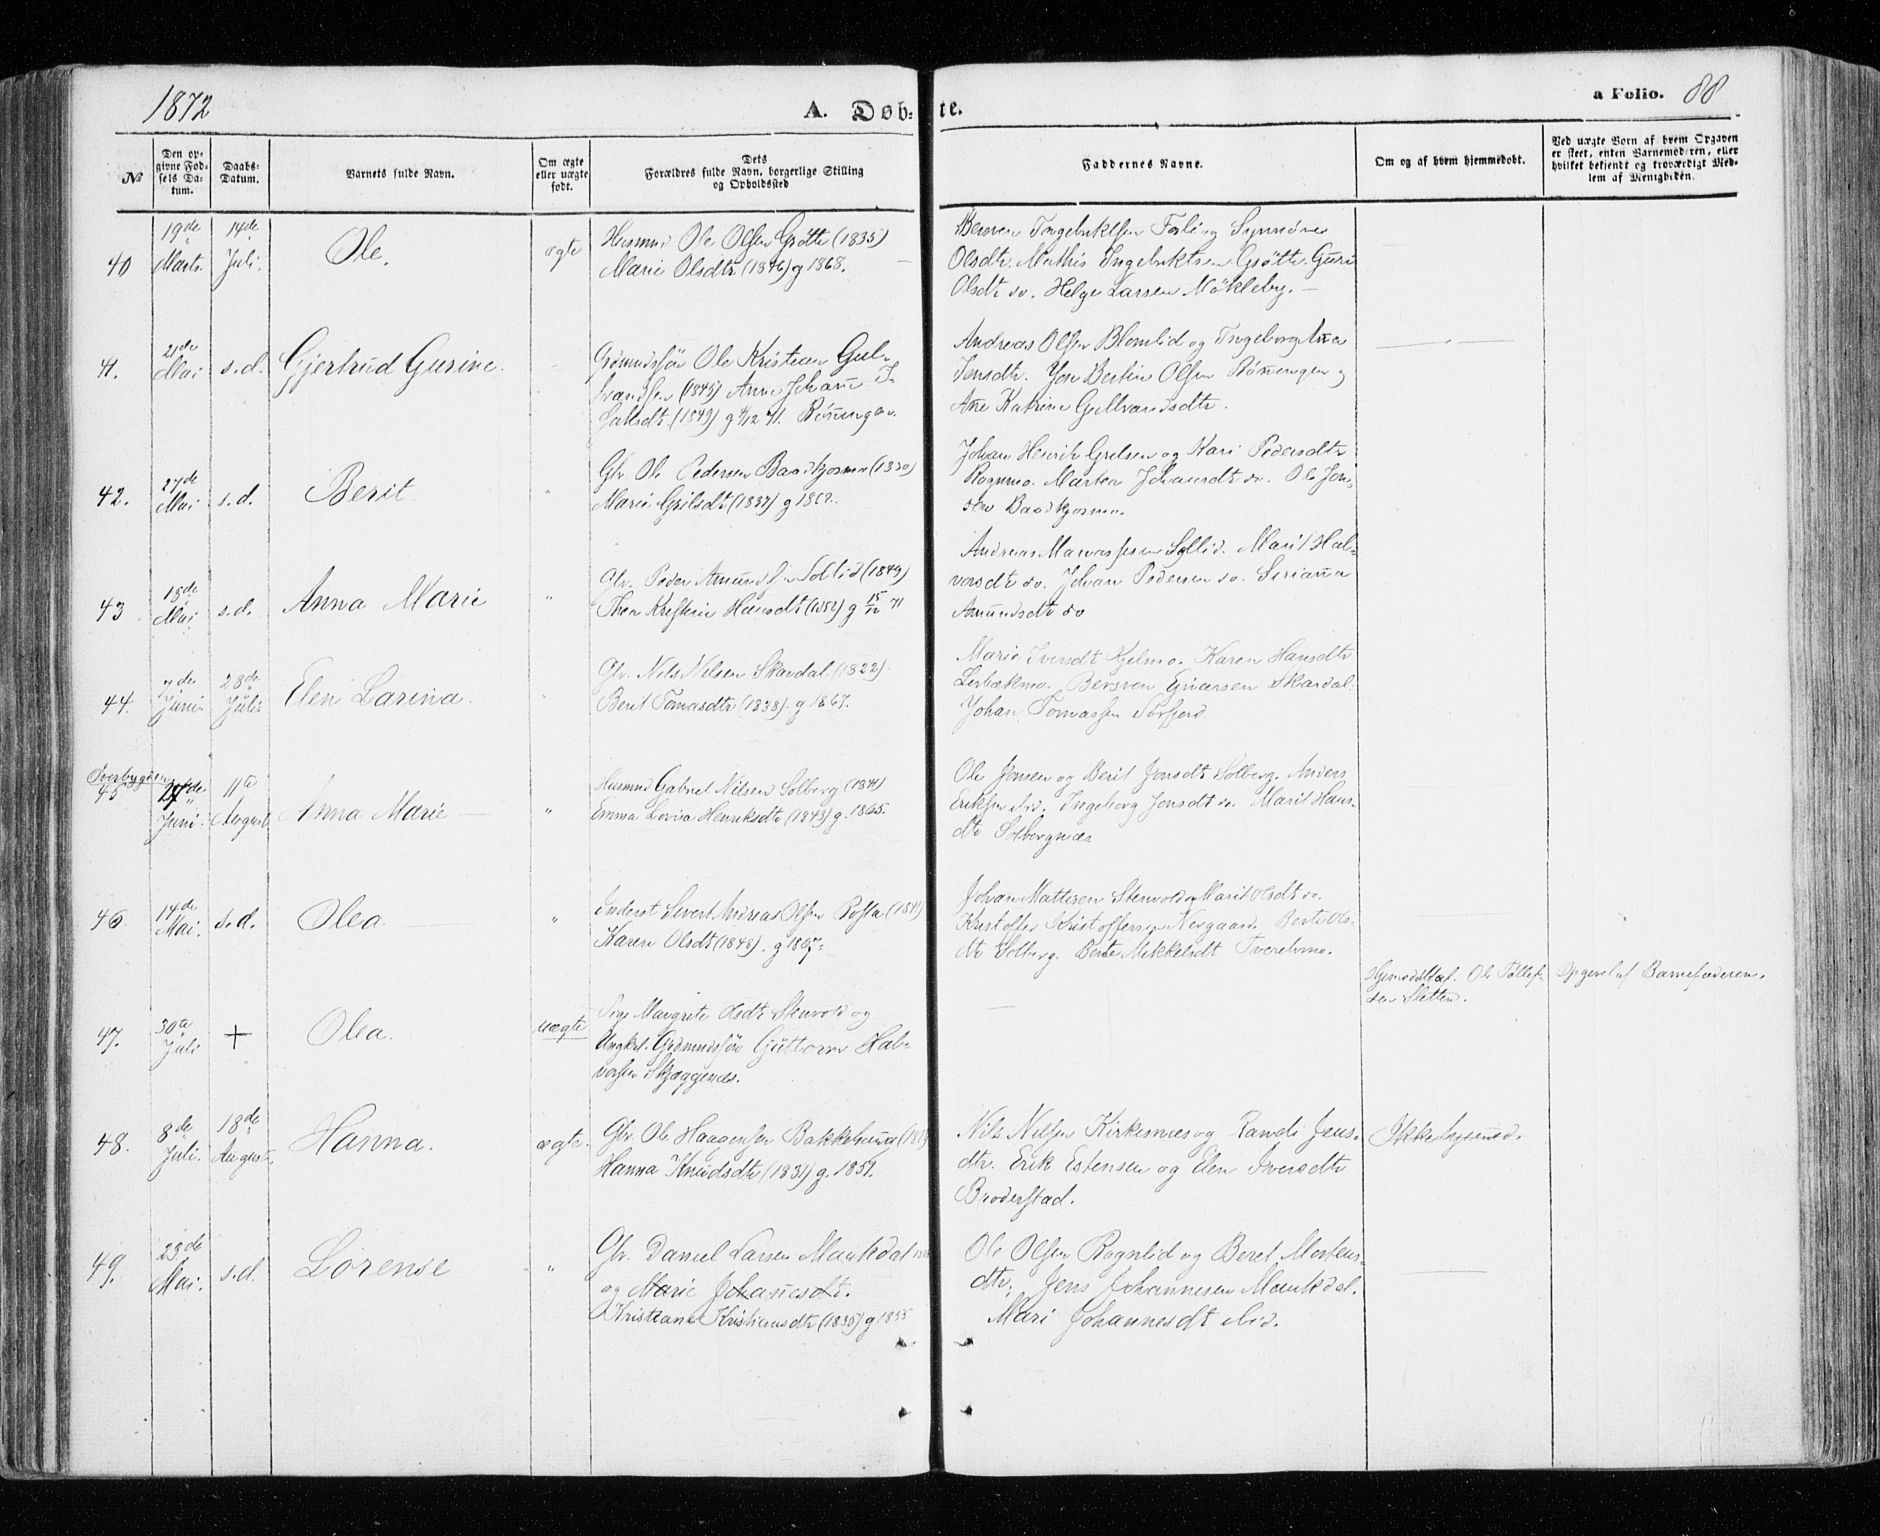 1872
A. Døb-te.
a Folio. 88
No
Den opgivne Fødsels Datum.
Daabs-Datum.
Barnets fulde Navn.
Om ægte eller uægte født.
Dets Forældres fulde Navn, borgerlige Stilling og Opholdssted
Faddernes Navne.
Om og af hvem hjemmedøbt.
Ved uægte Børn af hvem Opgaven er skeet, enten Barnemoderen, eller hvilket bekjendt og troværdigt Medlem af Menigheden.
40
19de Marts.
14de Juli.
Ole.
ægte
Husmnd Ole Olsen Grøtte (1835)
Marie Olsdtr (1846) g 1868.
Bersven Ingebrigtsen Fosli og Synnøve
Olsdtr. Mathis Ingebriktsen Grøtte. Guri
Olsdtr do. Helge Larsen Møkleby.
41.
21de Mai
s.d.
Gjertrud Gurine.
Grdmandssøn Ole Kristian Gul-
brandsen (1845) Anne Johanne I-
saksdt. (1849) g 4/12 71. Rønningen.
Andreas Olsen Blomlid og Ingeborg Ane
Jensdtr. Jon Bertin Olsen Rønningen og
Ane Katrine Gulbrandsdtr.
42.
27de Mai
s.d.
Berit
"
Gbr. Ole Pedersen Baadkjosmo (1830)
Marie Grilsdt (1837) g 1862.
Johan Henrik Grelsen og Kari Pedersdtr
Rognmo. Marten Johansdt do. Ole Jen-
sen Baadkjosmo.
43
18de Mai
s.d.
Anna Marie
"
Gbr. Peder Amundsen Sollid (1849)
Thea Kristine Hansdt (1852) g 15/12 71
Andreas Sollid. Marit Hal-
vorsdtr do. Johan Pedersen do. Serianna
Amundsdtr do
44.
Juni.
28de Juli
Elen Larina.
"
Gbr. Nils Nilsen Skardal (1822).
Berit Tomasdtr (1838). g 1867.
Marie Iversdt Kjelmo. Karen Hansdtr
Lerbækmo. Bersven Einarsen Skardal.
Johan Tomassen Sørfjord.
Øverbygden
45
Juni.
11te August
Anna Marie
"
Husmnd Gabriel Nilsen Solberg (1841)
Emma Lovisa Henriksdtr (1843) g. 1865.
Ole Jonsen og Berit Jonsdt Solberg. Anders
Eriksen ibid. Ingeborg Jonsdt do. Marit Hans-
dtr Solbergnæs
46.
14de Mai.
s.d.
Olea.
"
Inderst Sivert Andreas Olsen Rosta (1841)
Karen Olsdt (1848). g 1867.
Johan Mattisen Stenvold og Marit Olsdt do.
Kristoffer Kristoffersen Nergaard. Berit Ols-
dtr Solberg. Berte Mikkelsdt Tverelvmo.
47.
30te Juli
+
Olea.
uægte
Pige Margrete Olsdt Stenvold og
Ungkrl. Grdmndssøn Guttorm Hal-
vorsen Skjæggenæs.
Hjemmedøbt af Ole Tollef-
sen Sletten.
Opgivet af Barnefaderen.
48.
8de Juli.
18de August.
Hanna.
ægte.
Gbr. Ole Haagensen Bakkehaug
Hanna Knudsdtr (1831) g. 1857.
Nils Nilsen Kirkesnæs og Randi Jens-
dtr. Erik Estensen og Elen Iversdtr
Broderstad.
Ikke hjemmed.
49.
23de Mai.
s.d.
Lorense
"
Gbr. Daniel Larsen Maukdal
og Marie Johannesdt.
Kristiane Kristiansdtr (1830) g 1855
Ole Olsen Rognlid og Beret Mortens-
dtr. Jens Johannesen Maukdal.
Mari Johannesdt ibid.